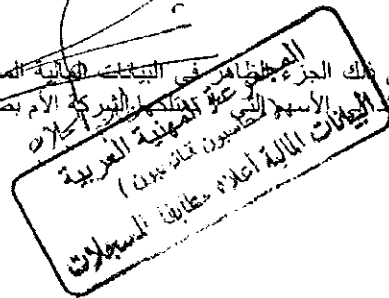 ذلك الجزء الظاهر في البيانات المالية
الأسهم التي تمتلكها الشركة الأم
المجموعة المهنية العربية
(محاسبون قانونيون)
البيانات المالية أعلاه مطابقة للسجلات